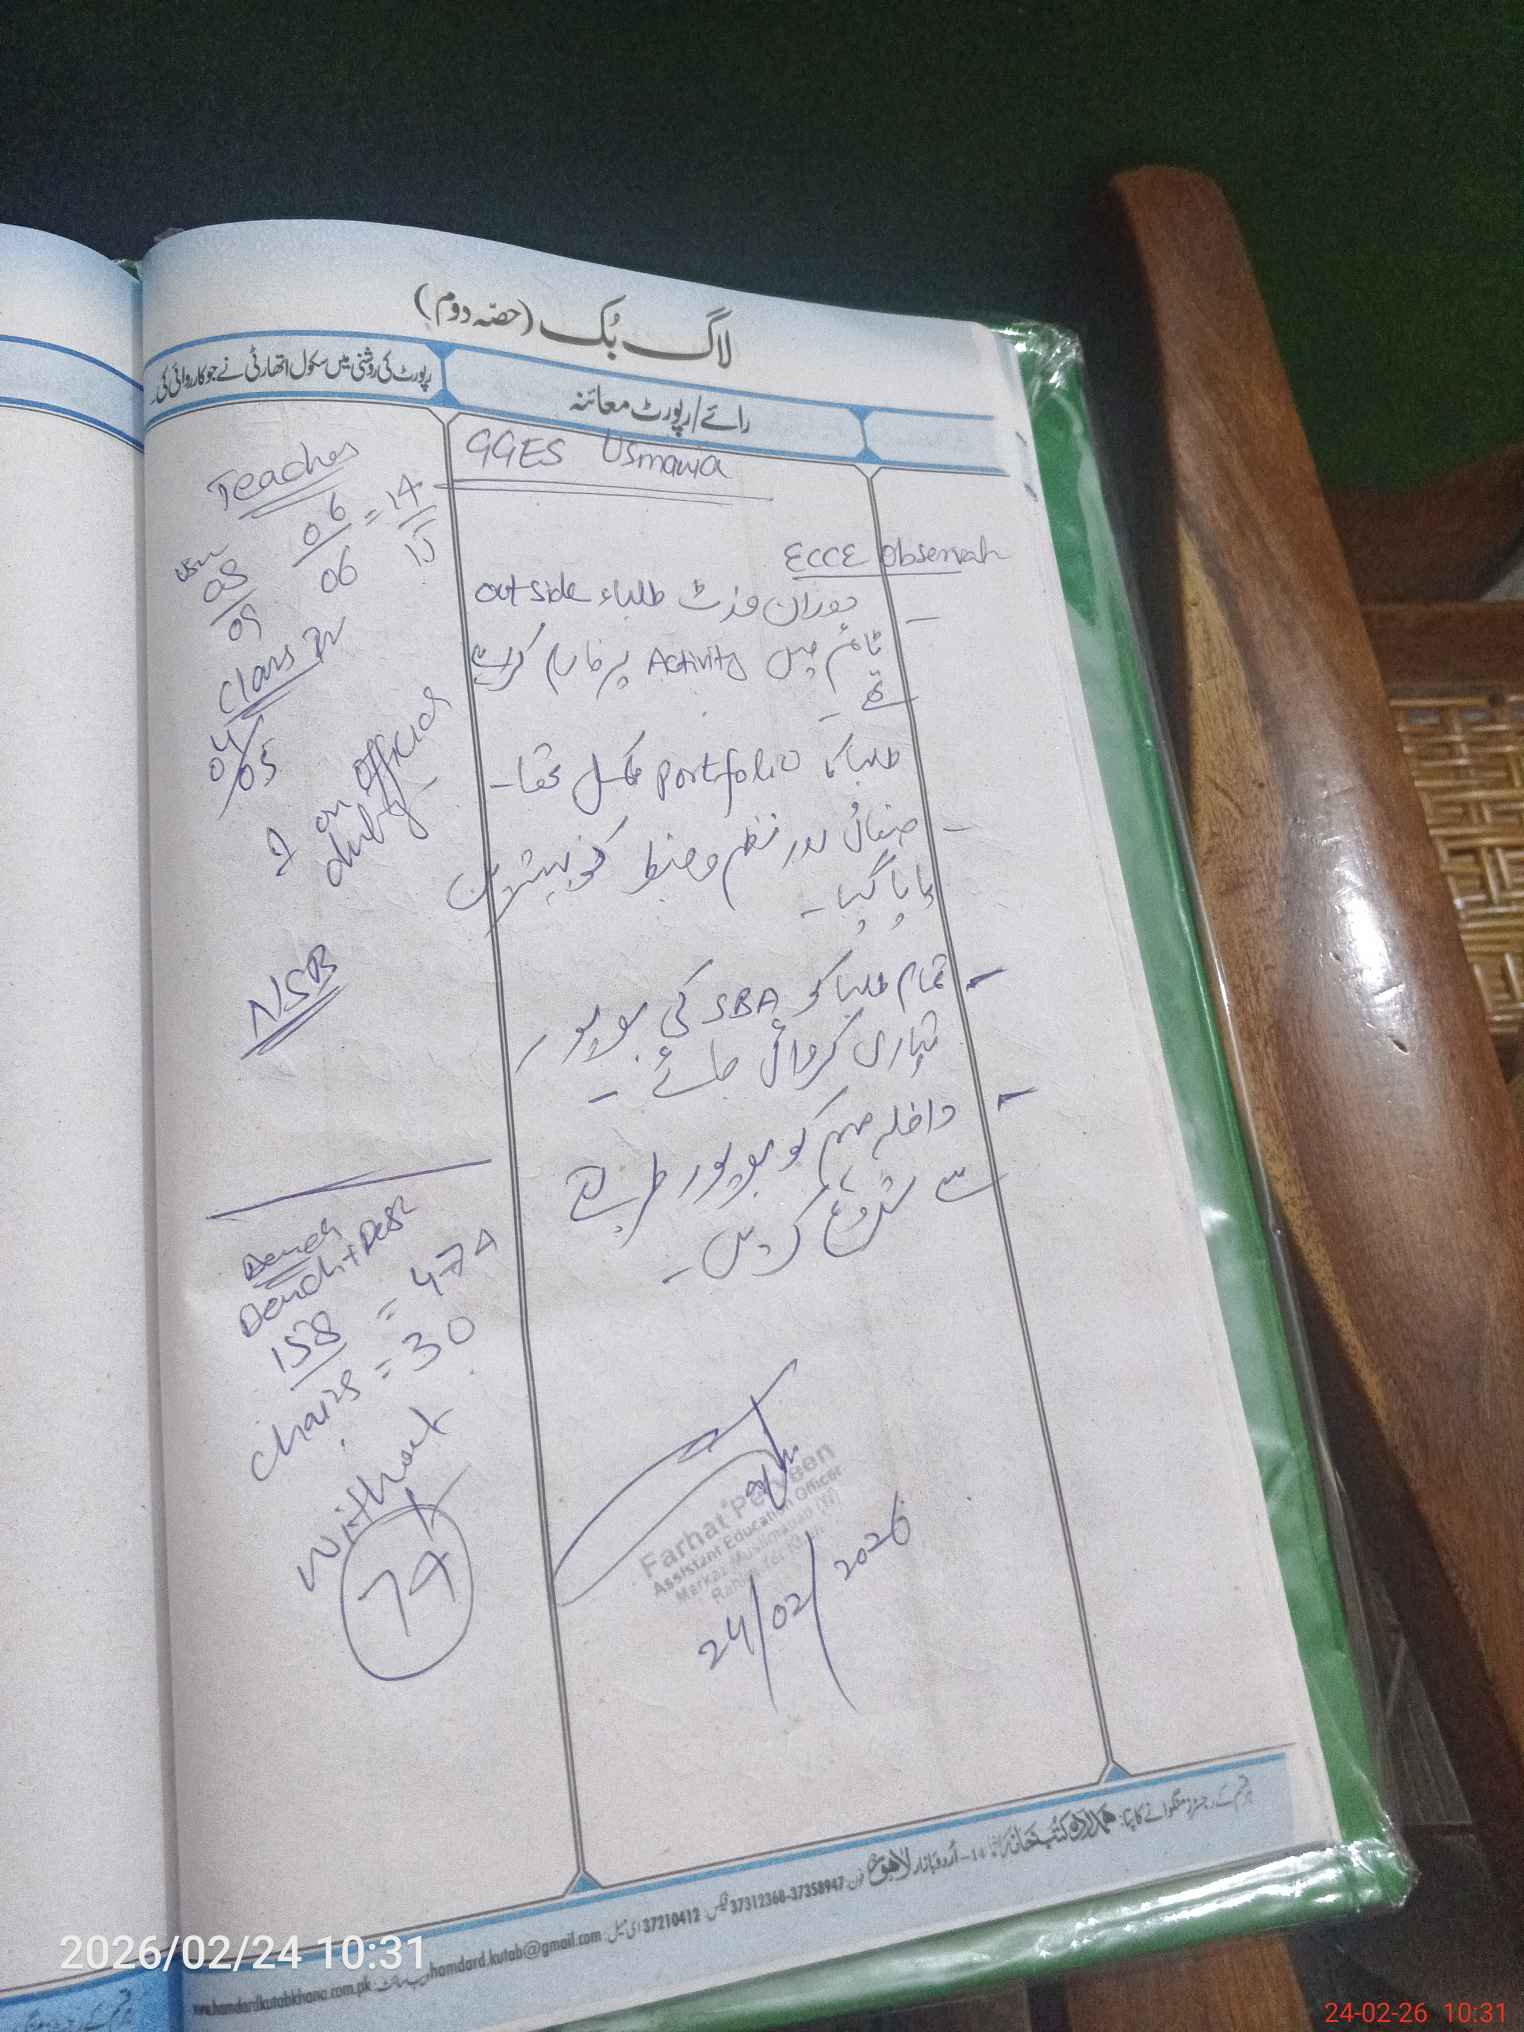 لاگ بُک (حصّہ دوم)
رپورٹ کی روشنی میں سکول اتھارٹی نے جو کارروائی کی۔
رائے/رپورٹ معائنہ
GGES Usmania
ECCE Observah
- دوران وزٹ طلباء outside
ٹائم میں Activity پرفارم کر رہے
تھے -
طلبا کا Portfolio مکمل تھا -
- صفائی اور نظم و ضبط کو بہترین
پایا گیا -
- تمام طلبا کو SBA کی بھرپور
تیاری کروائی جائے -
- داخلہ مہم کو بھرپور طریقے
سے شروع کریں -
Farhat Perveen
Assistant Education Officer
24/02/2026
Teacher
08
09
06
06
= 14
15
Class
04/05
on official
duty -
NSB
Bench
Bench + Desk
158 = 474
Chairs = 30
Without
74
ہر قسم کے رجسٹر منگوانے کا پتا: ہمدرد کتب خانہ 14- اُردو بازار لاہور فون: 37358947-37312360 فیکس: 37210412 ای میل: hamdard.kutab@gmail.com ویب سائٹ: www.hamdardkutabkhana.com.pk
2026/02/24 10:31
24-02-26 10:31